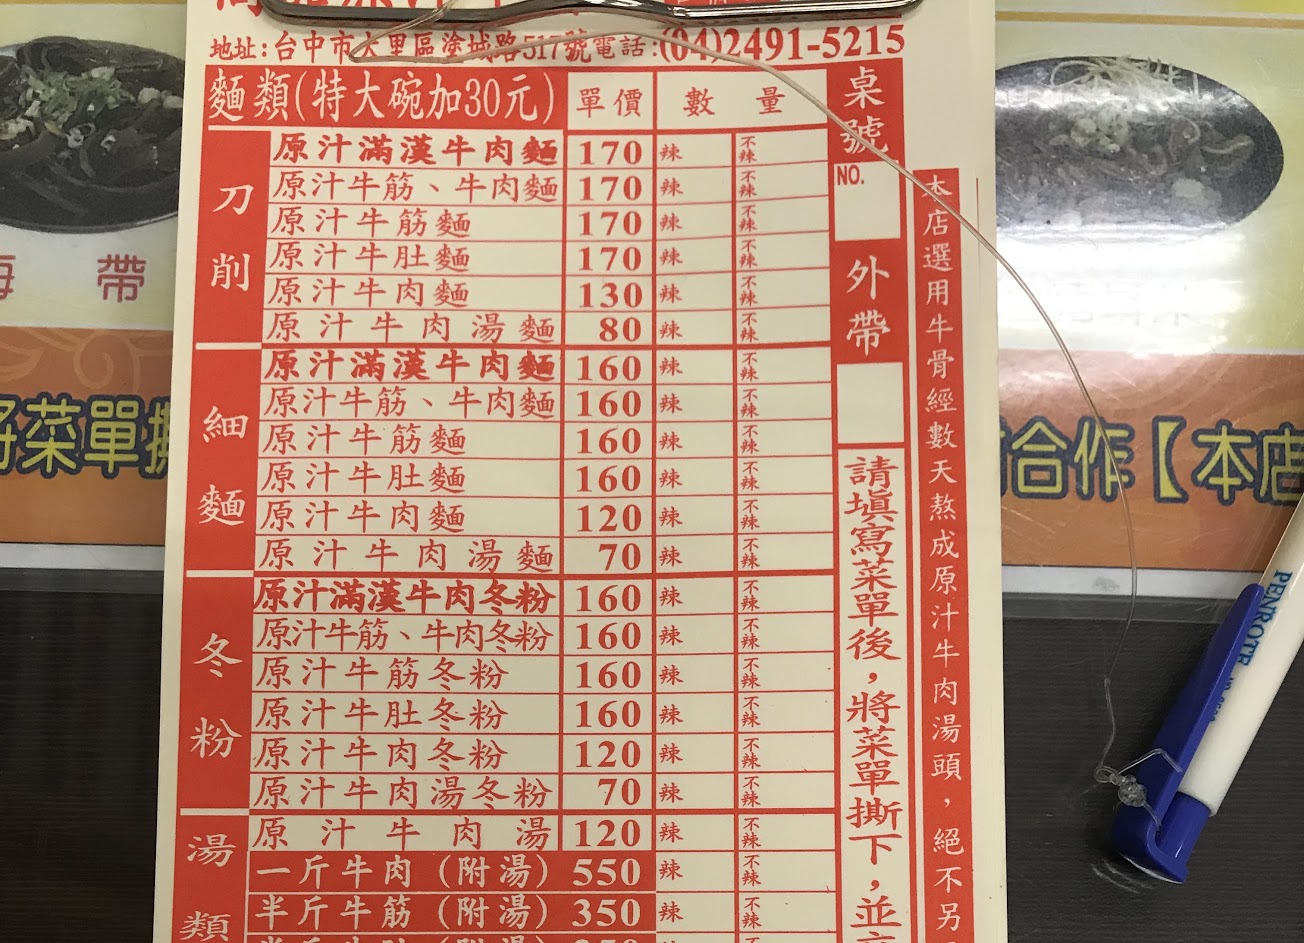 地址:台中市大里區塗城路517號電話:(04)2491-5215
麵類(特大碗加30元) 單價 數量
桌號
NO.
外帶
刀削
原汁滿漢牛肉麵 170 辣 不辣
原汁牛筋、牛肉麵 170 辣 不辣
原汁牛筋麵 170 辣 不辣
原汁牛肚麵 170 辣 不辣
原汁牛肉麵 130 辣 不辣
原汁牛肉湯麵 80 辣 不辣
細麵
原汁滿漢牛肉麵 160 辣 不辣
原汁牛筋、牛肉麵 160 辣 不辣
原汁牛筋麵 160 辣 不辣
原汁牛肚麵 160 辣 不辣
原汁牛肉麵 120 辣 不辣
原汁牛肉湯麵 70 辣 不辣
冬粉
原汁滿漢牛肉冬粉 160 辣 不辣
原汁牛筋、牛肉冬粉 160 辣 不辣
原汁牛筋冬粉 160 辣 不辣
原汁牛肚冬粉 160 辣 不辣
原汁牛肉冬粉 120 辣 不辣
原汁牛肉湯冬粉 70 辣 不辣
湯類
原汁牛肉湯 120 辣 不辣
一斤牛肉(附湯) 550 辣 不辣
半斤牛筋(附湯) 350 辣 不辣
請填寫菜單後,將菜單撕下,並
本店選用牛骨經數天熬成原汁牛肉湯頭,絕不另
帶
菜單
合作【本店
PENROTE